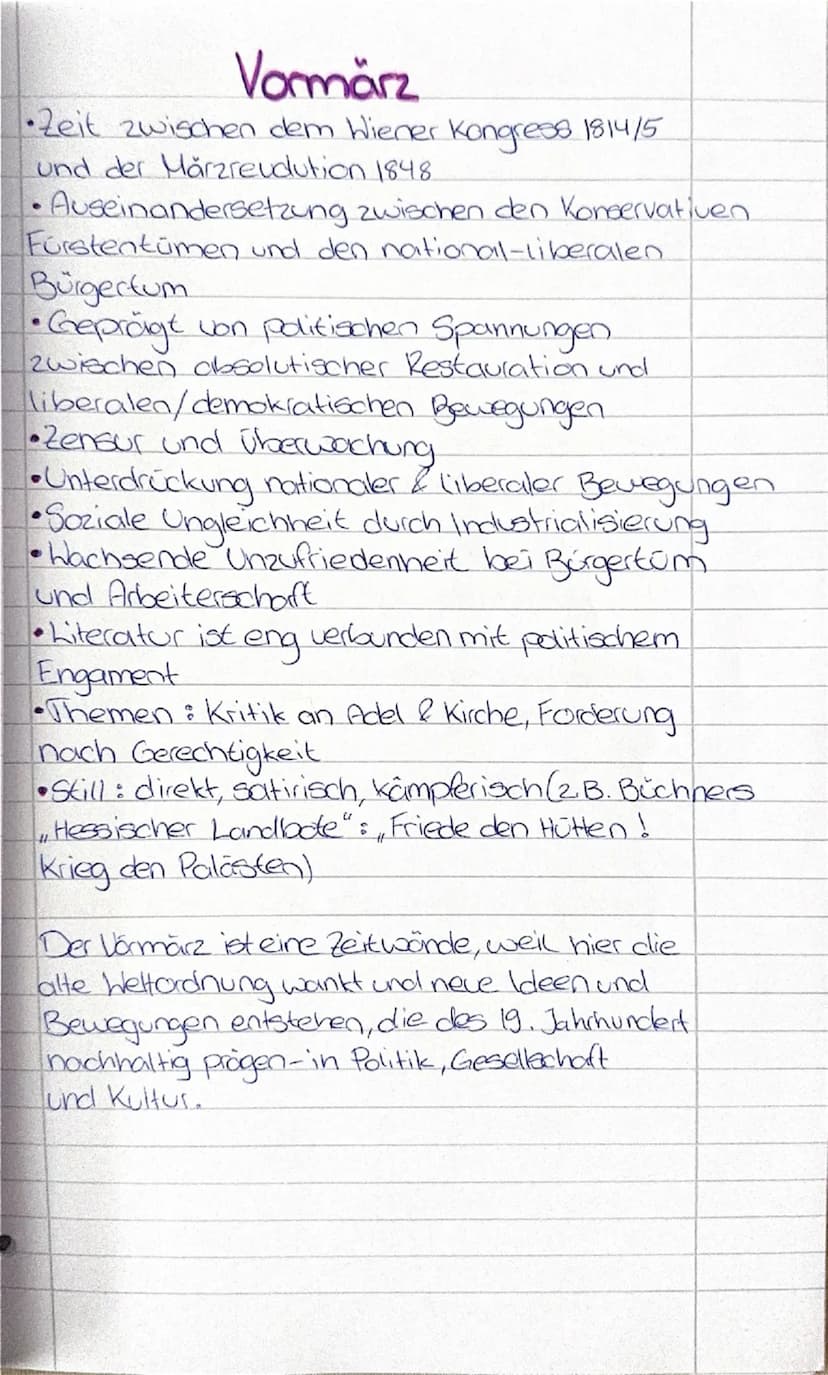 Vormärz
• Zeit zwischen dem Wiener Kongress 1814/5
und der Märzrevolution 1848
• Auseinandersetzung zwischen den Konservativen
Fürstentümen und den national-liberalen
Bürgertum
• Geprägt von politischen Spannungen
zwischen absolutischer Restauration und
liberalen/demokratischen Bewegungen
• Zensur und Überwachung
• Unterdrückung nationaler & liberaler Bewegungen
• Soziale Ungleichheit durch Industrialisierung
• Wachsende Unzufriedenheit bei Bürgertum
und Arbeiterschaft
• Literatur ist eng verbunden mit politischem
Engament
• Themen: Kritik an Adel & Kirche, Forderung
nach Gerechtigkeit
• Still: direkt, satirisch, kämpferisch (z.B. Büchners
„Hessischer Landbote“: „Friede den Hütten!
Krieg den Palästen)
Der Vormärz ist eine Zeitwände, weil hier die
alte Weltordnung wankt und neue Ideen und
Bewegungen entstehen, die des 19. Jahrhundert
nachhaltig prägen - in Politik, Gesellschaft
und Kultur.